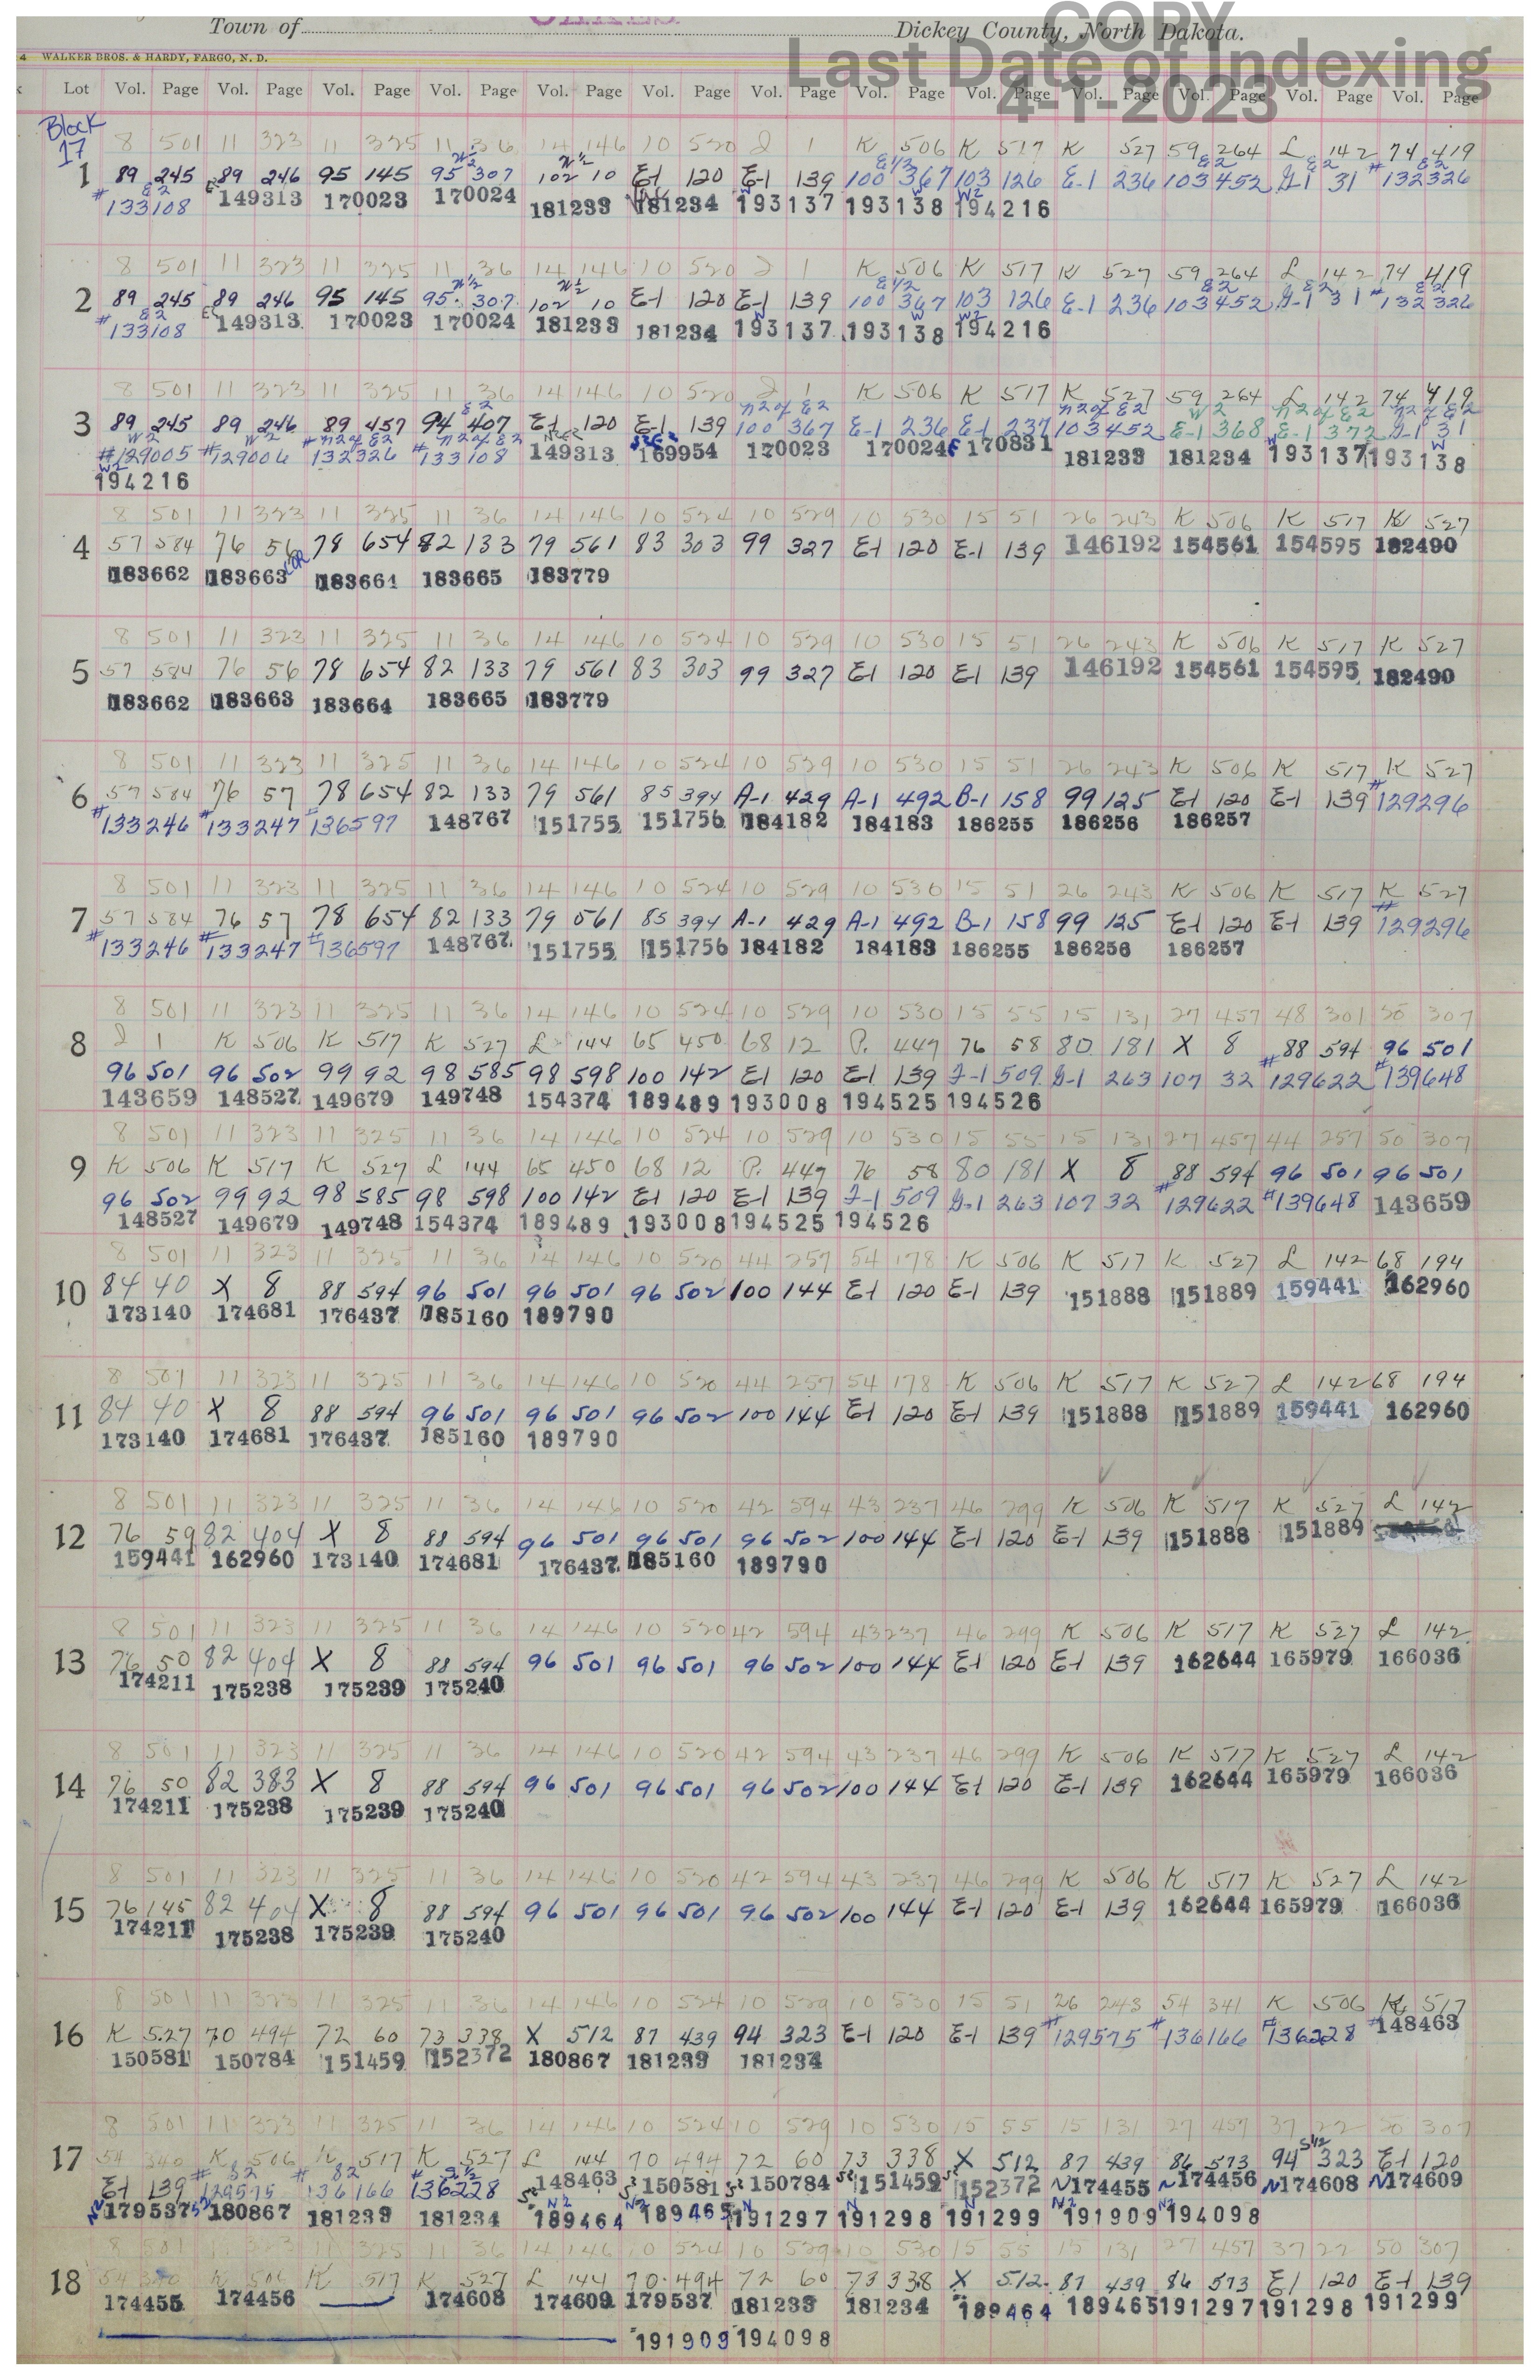 COPY
Last Date of Indexing
4-1-2023
Town of Dickey County, North Dakota.
4 WALKER BROS. & HARDY, FARGO, N. D.
Lot Vol. Page Vol. Page Vol. Page Vol. Page Vol. Page Vol. Page Vol. Page Vol. Page Vol. Page Vol. Page Vol. Page Vol. Page Vol. Page
Block
17
8 501 11 323 11 325 11 36 14 146 10 520 J 1 K 506 K 517 K 527 59 264 L 142 74 419
N½ N½ E1/2 E2 E2
1 89 245 89 246 95 145 95 307 102 10 E-1 120 E-1 139 100 367 103 126 E-1 236 103 452 G-1 31 #132326
E2 W W W2
#133108 149313 170023 170024 181233 181234 193137 193138 194216
8 501 11 323 11 325 11 36 14 146 10 520 J 1 K 506 K 517 K 527 59 264 L 142 74 419
N½ N½ E1/2 E2 E2 E2
2 89 245 89 246 95 145 95 307 102 10 E-1 120 E-1 139 100 367 103 126 E-1 236 103 452 G-1 31 #132326
E2 W W W2
#133108 149313 170023 170024 181233 181234 193137 193138 194216
8 501 11 323 11 325 11 36 14 146 10 520 J 1 K 506 K 517 K 527 59 264 L 142 74 419
E2 N2 of E2 N2 of E2 W2 N2 of E2 N2 of E2
3 89 245 89 246 89 457 94 407 E-1 120 E-1 139 100 367 E-1 236 E-1 237 103 452 E-1 368 E-1 372 G-1 31
W2 W2 N2 of E2 N2 of E2 W W
#129005 #129006 #132326 #133108 149313 169954 170023 170024 170831 181233 181234 193137 193138
W2
194216
8 501 11 323 11 325 11 36 14 146 10 524 10 529 10 530 15 51 26 243 K 506 K 517 K 527
4 57 584 76 56 78 654 82 133 79 561 83 303 99 327 E-1 120 E-1 139 146192 154561 154595 182490
183662 183663 COR 183664 183665 183779
8 501 11 323 11 325 11 36 14 146 10 524 10 529 10 530 15 51 26 243 K 506 K 517 K 527
5 57 584 76 56 78 654 82 133 79 561 83 303 99 327 E-1 120 E-1 139 146192 154561 154595 182490
183662 183663 183664 183665 183779
8 501 11 323 11 325 11 36 14 146 10 524 10 529 10 530 15 51 26 243 K 506 K 517 K 527
6 57 584 76 57 78 654 82 133 79 561 85 394 A-1 429 A-1 492 B-1 158 99 125 E-1 120 E-1 139 #129296
#133246 #133247 #136597 148767 151755 151756 184182 184183 186255 186256 186257
8 501 11 323 11 325 11 36 14 146 10 524 10 529 10 530 15 51 26 243 K 506 K 517 K 527
7 57 584 76 57 78 654 82 133 79 561 85 394 A-1 429 A-1 492 B-1 158 99 125 E-1 120 E-1 139 #129296
#133246 #133247 #136597 148767 151755 151756 184182 184183 186255 186256 186257
8 501 11 323 11 325 11 36 14 146 10 524 10 529 10 530 15 55 15 131 27 457 48 301 50 307
8 J 1 K 506 K 517 K 527 L 144 65 450 68 12 P. 447 76 58 80 181 X 8 88 594 96 501
96 501 96 502 99 92 98 585 98 598 100 142 E-1 120 E-1 139 F-1 509 G-1 263 107 32 #129622 #139648
143659 148527 149679 149748 154374 189489 193008 194525 194526
8 501 11 323 11 325 11 36 14 146 10 524 10 529 10 530 15 55 15 131 27 457 44 257 50 307
9 K 506 K 517 K 527 L 144 65 450 68 12 P. 447 76 58 80 181 X 8 88 594 96 501 96 501
96 502 99 92 98 585 98 598 100 142 E-1 120 E-1 139 F-1 509 G-1 263 107 32 #129622 #139648 143659
148527 149679 149748 154374 189489 193008 194525 194526
8 501 11 323 11 325 11 36 14 146 10 520 44 257 54 178 K 506 K 517 K 527 L 142 68 194
10 84 40 X 8 88 594 96 501 96 501 96 502 100 144 E-1 120 E-1 139 151888 151889 159441 162960
173140 174681 176437 185160 189790
8 501 11 323 11 325 11 36 14 146 10 520 44 257 54 178 K 506 K 517 K 527 L 142 68 194
11 84 40 X 8 88 594 96 501 96 501 96 502 100 144 E-1 120 E-1 139 151888 151889 159441 162960
173140 174681 176437 185160 189790
8 501 11 323 11 325 11 36 14 146 10 520 42 594 43 237 46 299 K 506 K 517 K 527 L 142
12 76 59 82 404 X 8 88 594 96 501 96 501 96 502 100 144 E-1 120 E-1 139 151888 151889
159441 162960 173140 174681 176437 185160 189790
8 501 11 323 11 325 11 36 14 146 10 520 42 594 43 237 46 299 K 506 K 517 K 527 L 142
13 76 50 82 404 X 8 88 594 96 501 96 501 96 502 100 144 E-1 120 E-1 139 162644 165979 166036
174211 175238 175239 175240
8 501 11 323 11 325 11 36 14 146 10 520 42 594 43 237 46 299 K 506 K 517 K 527 L 142
14 76 50 82 383 X 8 88 594 96 501 96 501 96 502 100 144 E-1 120 E-1 139 162644 165979 166036
174211 175238 175239 175240
8 501 11 323 11 325 11 36 14 146 10 520 42 594 43 237 46 299 K 506 K 517 K 527 L 142
15 76 145 82 404 X 8 88 594 96 501 96 501 96 502 100 144 E-1 120 E-1 139 162644 165979 166036
174211 175238 175239 175240
8 501 11 323 11 325 11 36 14 146 10 524 10 529 10 530 15 51 26 243 54 341 K 506 K 517
16 K 527 70 494 72 60 73 338 X 512 87 439 94 323 E-1 120 E-1 139 #129575 #136166 #136228 148463
150581 150784 151459 152372 180867 181239 181234
8 501 11 323 11 325 11 36 14 146 10 524 10 529 10 530 15 55 15 131 27 457 37 22 50 307
17 54 340 K 506 K 517 K 527 L 144 70 494 72 60 73 338 X 512 87 439 86 573 94 S1/2 323 E-1 120
E-1 139 #129575 #136166 #136228 148463 150581 150784 151459 152372 N174455 N174456 N174608 N174609
179537 180867 181239 181234 189464 189465 191297 191298 191299 191909 194098
8 501 11 323 11 325 11 36 14 146 10 524 10 529 10 530 15 55 15 131 27 457 37 22 50 307
18 54 340 K 506 K 517 K 527 L 144 70 494 72 60 73 338 X 512 87 439 86 573 E-1 120 E-1 139
174455 174456 174608 174609 179537 181233 181234 189464 189465 191297 191298 191299
191909 194098